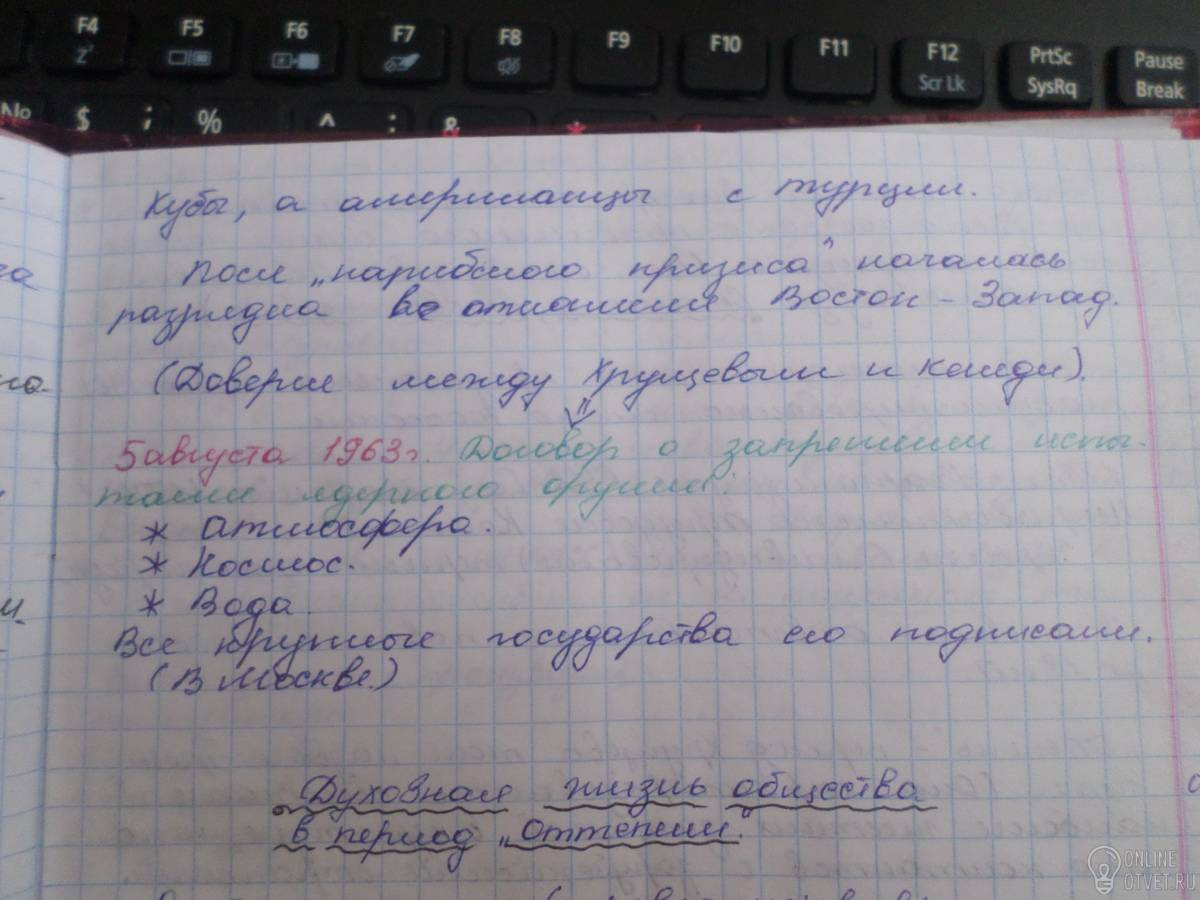 F4 F5 F6 F7 F8 F9 F10 F11 F12 PrtSc Pause
Z Scr Lk SysRq Break
No $ ; % ^ : & *
Кубы, а американцы с Турции.
После „карибского кризиса" началась
разрядка в отношения Восток - Запад.
(Доверие между Хрущевым и Кенеди).
5 августа 1963г. Договор о запрещении испы-
тании ядерного оружия:
* Атмосфера.
* Космос.
* Вода.
Все крупные государства его подписали.
(В Москве.)
Духовная жизнь общества
в период „Оттепели".
ONLINE
OTVET.RU